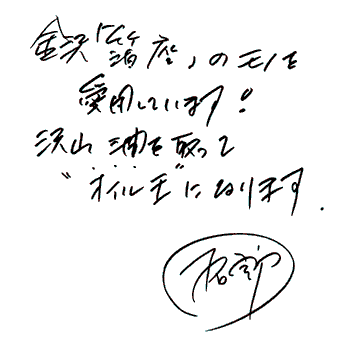 金沢「箔座」のモノを
愛用しています!
沢山油を取って
"オイル王"になります.